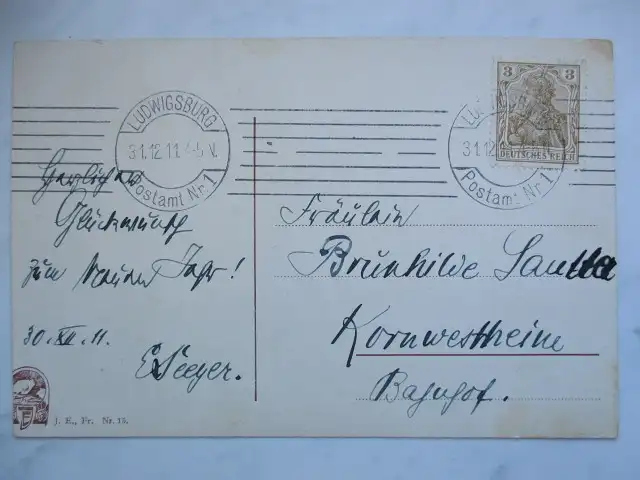 LUDWIGSBURG
31.12.11. 4-5 V.
Postamt Nr. 1
3 3
DEUTSCHES REICH
31.12
Postamt Nr. 1
Herzlichen
Glückwunsch
zum Neuen Jahr!
30. XII. 11.
E. Seeger.
Fräulein
Brunhilde
Kornwestheim
Bahnhof.
J. E., Fr. Nr. 15.